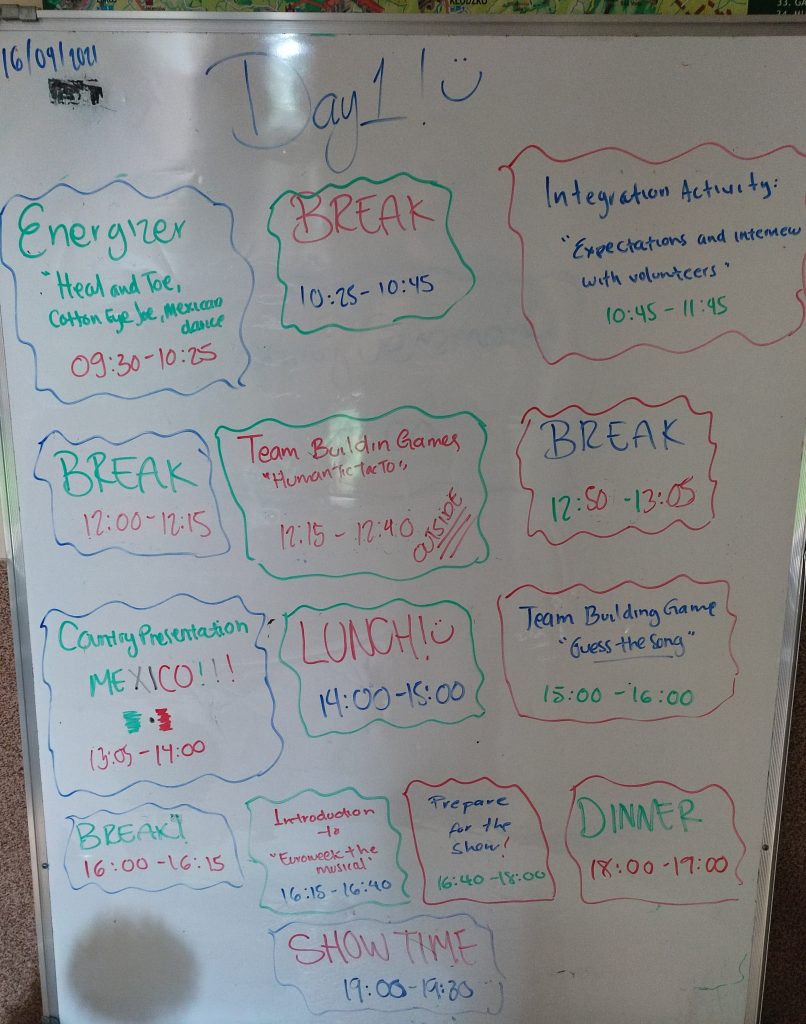 KŁODZKO
33. GA
16/09/2021
Day 1! :)
Energizer
"Heal and Toe,
Cotton Eye Joe, Mexican
dance
09:30-10:25
BREAK
10:25-10:45
Integration Activity:
"Expectations and interview
with volunteers"
10:45 - 11:45
BREAK
12:00-12:15
Team Buildin Games
"Human Tic Tac To"
12:15 - 12:40
OUTSIDE
BREAK
12:50 -13:05
Country Presentation
MEXICO!!!
13:05-14:00
LUNCH! :)
14:00-15:00
Team Building Game
"Guess the Song"
15:00 -16:00
BREAK!
16:00-16:15
Introduction
to
"Euroweek the
musical"
16:15 - 16:40
Prepare
for the
show!
16:40 -18:00
DINNER
18:00 -19:00
SHOW TIME
19:00-19:30